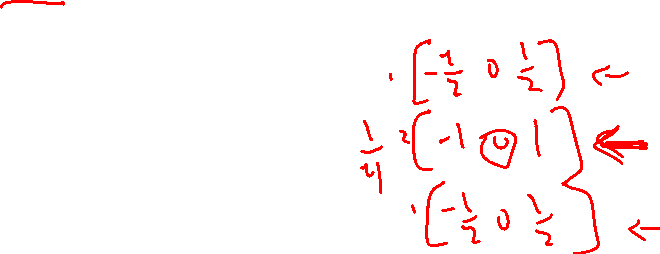 [-1/2 0 1/2] ←
1/4 2[-1 0 1] ←
1[-1/2 0 1/2] ←